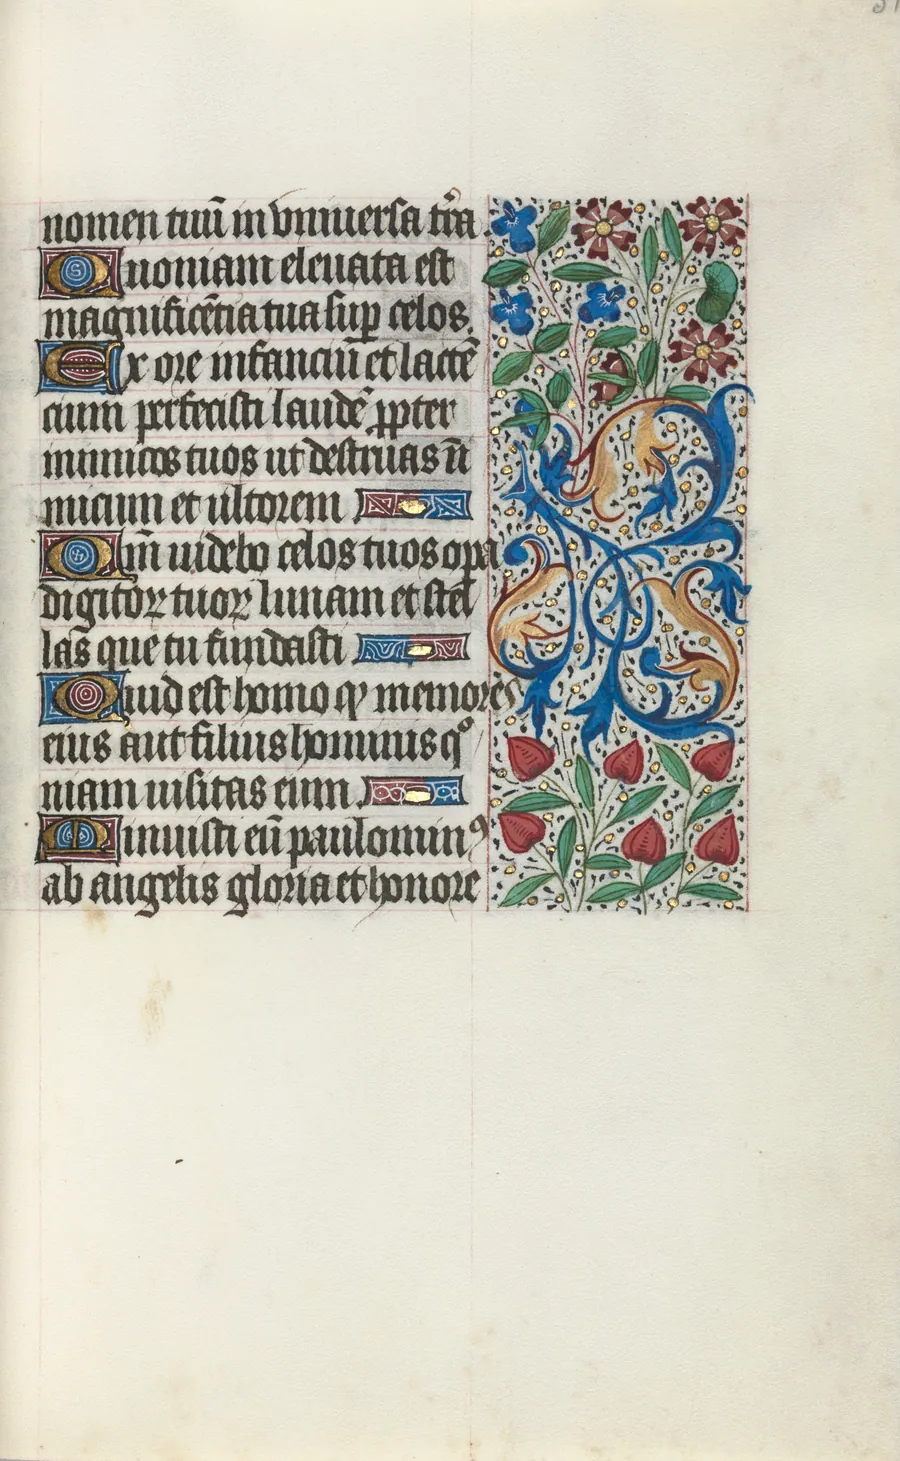 nomen tuū in vniuersa tr̄a.
Quoniam eleuata est
magnificētia tua sup̱ celos.
Ex ore infanciū et lactē
cium perfecisti laudē ꝓpter
inimicos tuos ut destruas īi
micum et ultorem
Qm̄ uidebo cēlos tuos opa
digitoꝝ tuoꝝ lunam et stel
las que tu fundasti
Quid est homo ꝙ memor es
eius aut filius hominis qͦ
niam uisitas eum.
Minuisti eū paulominꝰ
ab angelis gloria et honore